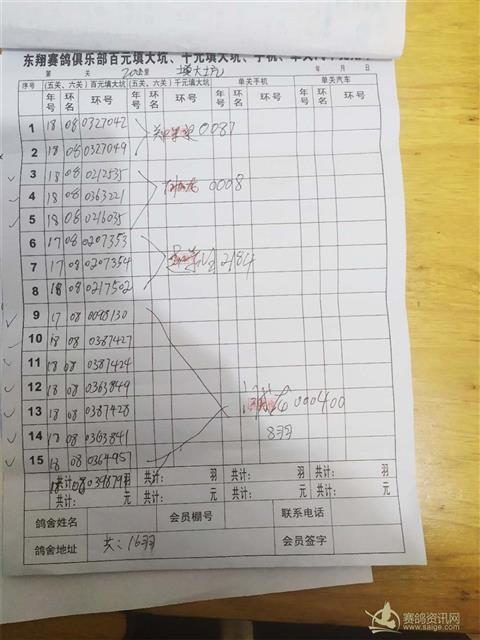 东翔赛鸽俱乐部百元填大坑、千元填大坑、手机、单关汽车
第 关 填大坑 年 月 日
序号 (五关、六关) 百元填大坑 (五关、六关) 千元填大坑 单关手机 单关汽车
年号 环名 环号 年号 环名 环号 年号 环名 环号 年号 环名 环号
1 18 08 0327042
0087
2 18 08 0327049
3 18 08 0212535
4 18 08 0363221 0008
5 18 08 0216035
6 17 08 0207353
7 17 08 0207354 2184
8 18 08 0217502
9 17 08 0098130
10 18 08 0387427
11 18 08 0387424
12 18 08 0363849
000400
13 18 08 0387428
14 18 08 0363841 8羽
15 18 08 0364957
共计: 羽 共计: 羽 共计: 羽 共计: 羽
18 08
共计: 元 共计: 元 共计: 元 共计: 元
鸽舍姓名 会员棚号 联系电话
鸽舍地址 共:16羽 会员签字
赛鸽资讯网
www.saige.com